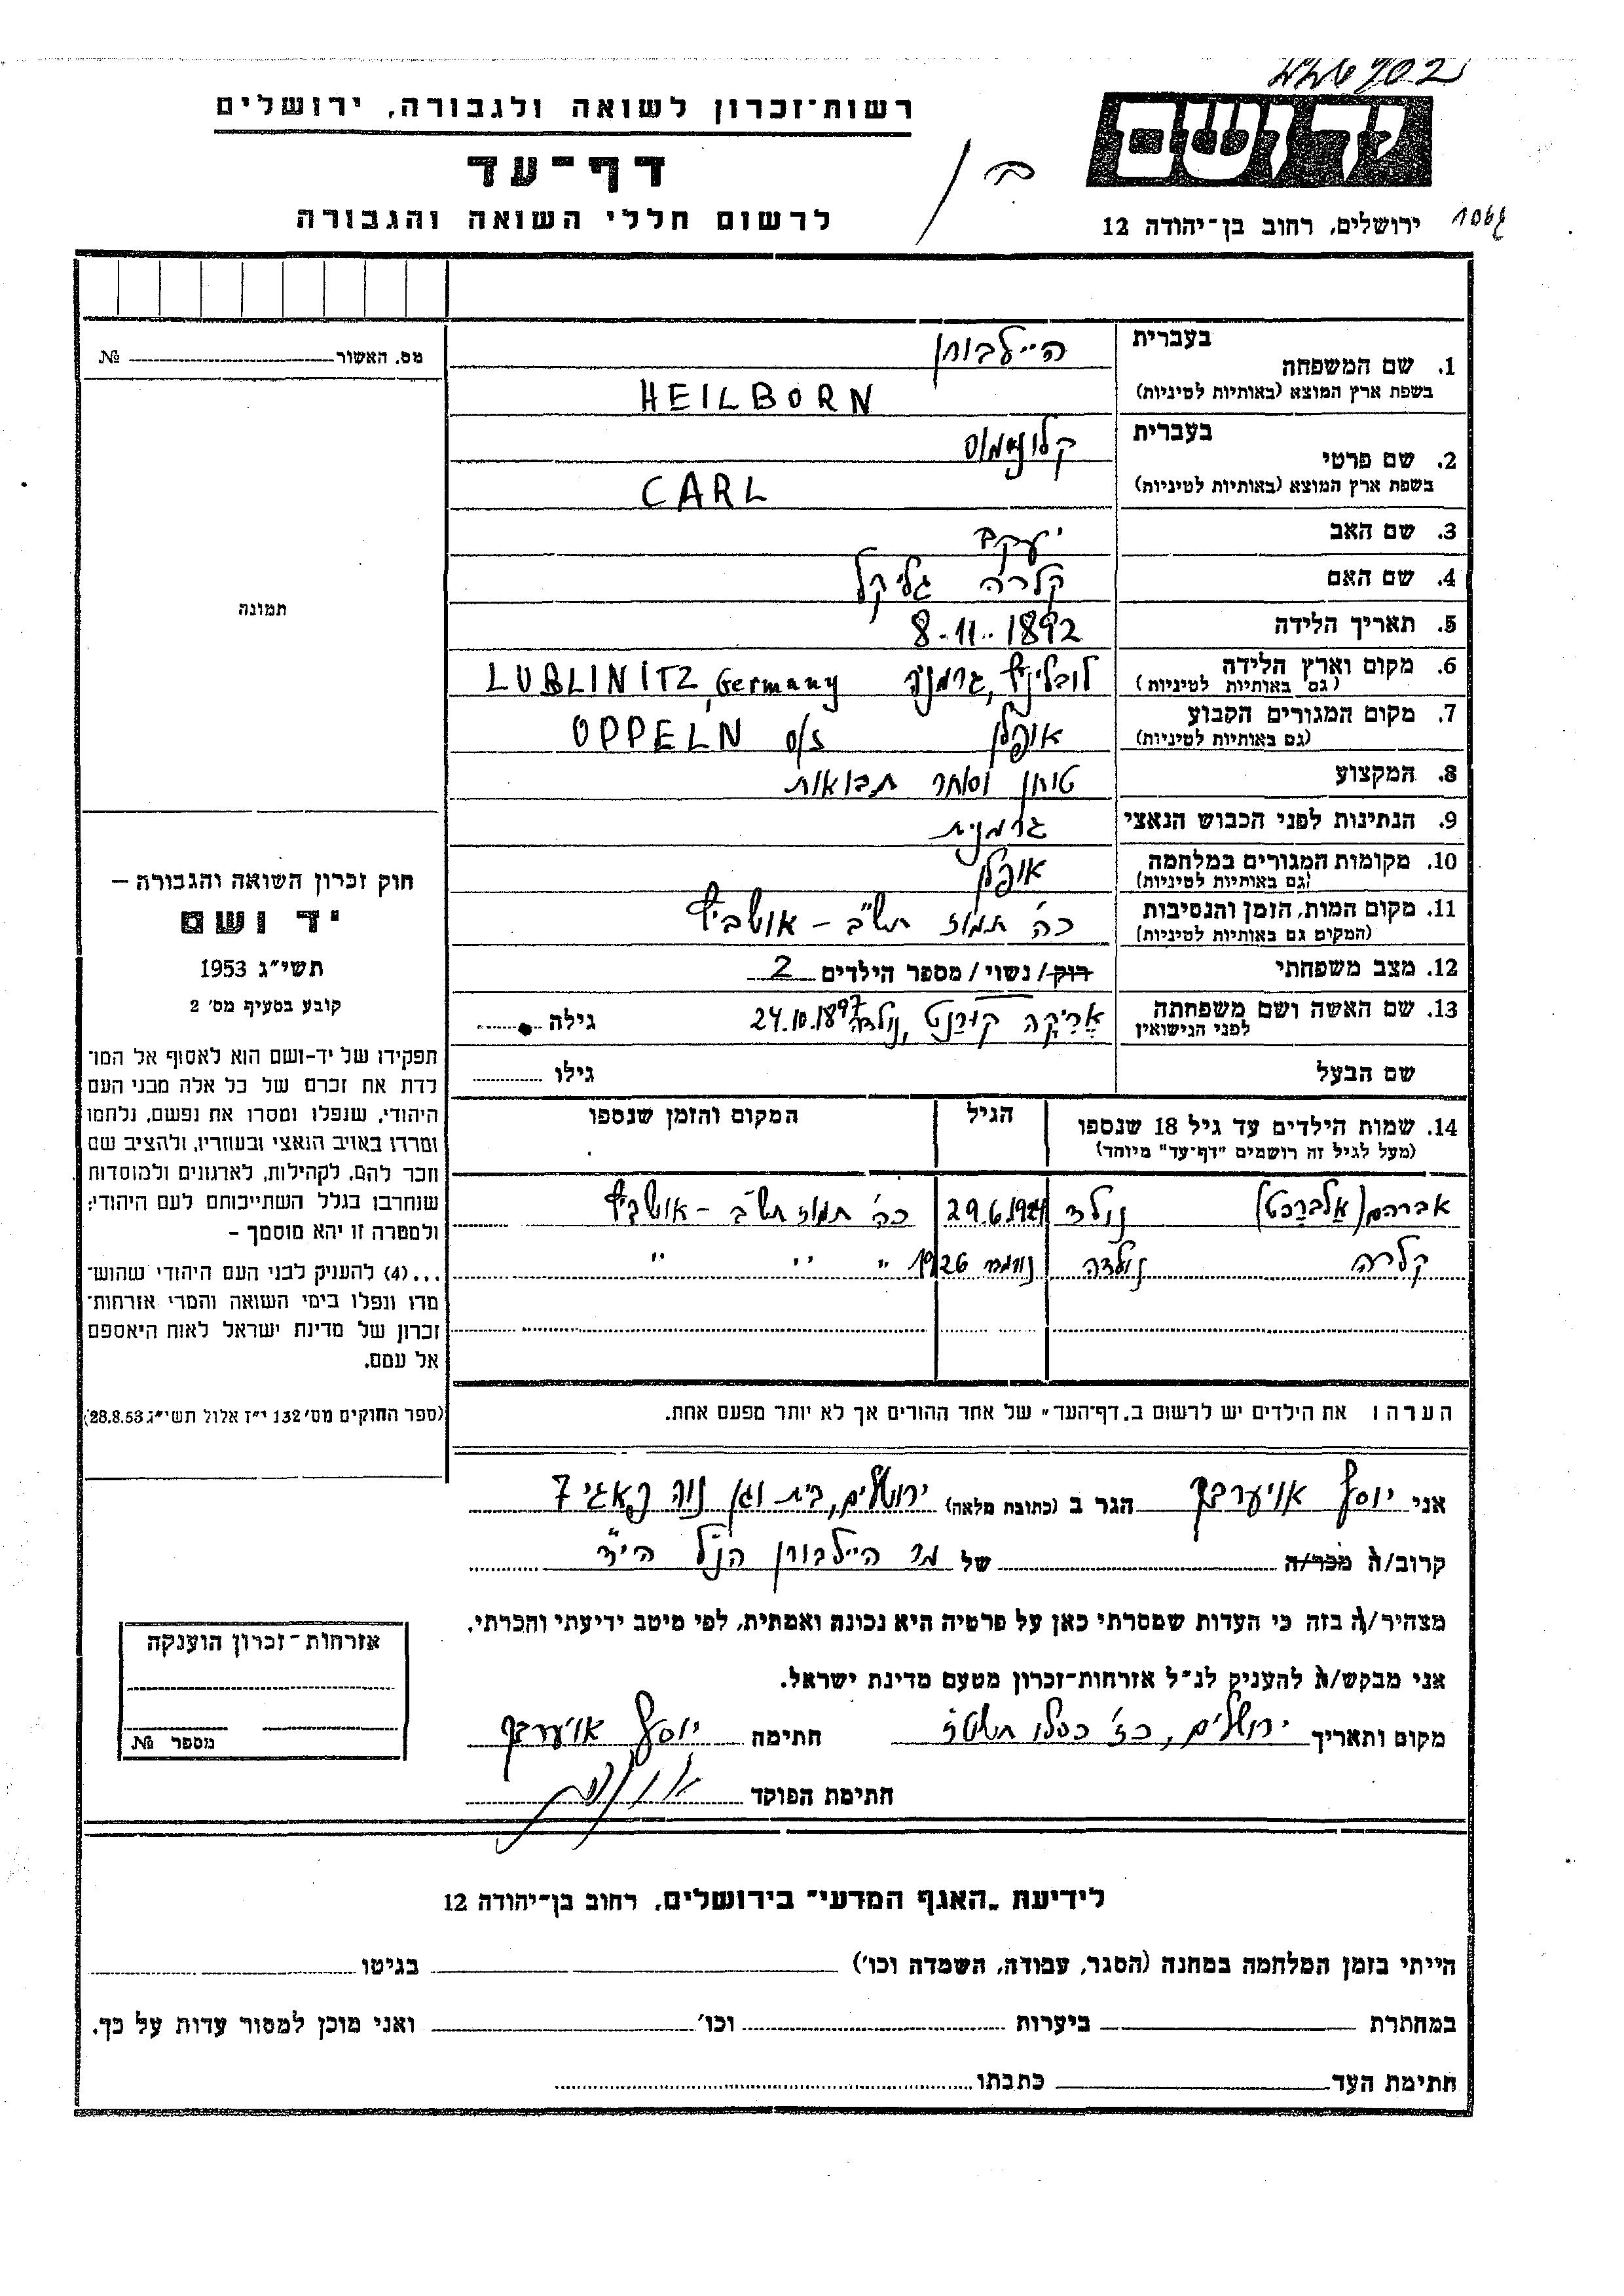 רשות-זכרון לשואה ולגבורה, ירושלים
דף-עד
לרשום חללי השואה והגבורה
יד ושם
ירושלים, רחוב בן-יהודה 12
מס. האשור № 
1. שם המשפחה
בעברית
היילבורן
בשפת ארץ המוצא (באותיות לטיניות)
HEILBORN
2. שם פרטי
בעברית
קלונימוס
בשפת ארץ המוצא (באותיות לטיניות)
CARL
3. שם האב
יעקב
4. שם האם
קלרה גליקל
5. תאריך הלידה
8-11-1892
6. מקום וארץ הלידה
(גם באותיות לטיניות)
לובליניץ, גרמניה LUBLINITZ, Germany
7. מקום המגורים הקבוע
(גם באותיות לטיניות)
אופלן OPPELN o/s
8. המקצוע
טוחן וסוחר תבואות
9. הנתינות לפני הכבוש הנאצי
גרמנית
10. מקומות המגורים במלחמה
(גם באותיות לטיניות)
אופלן
11. מקום המות, הזמן והנסיבות
(המקום גם באותיות לטיניות)
כה' תמוז תש"ב - אושביץ
12. מצב משפחתי
רוק/ נשוי/ מספר הילדים 2
13. שם האשה ושם משפחתה
לפני הנישואין
אריקה קורנט, נולדה 24.10.1897 גילה
שם הבעל גילו
14. שמות הילדים עד גיל 18 שנספו
(מעל לגיל זה רושמים "דף-עד" מיוחד)
הגיל
המקום והזמן שנספו
אברהם (אלברכט) נולד 29.6.1921 כה' תמוז תש"ב - אושביץ
קלרה נולדה 1926 " " "
הערה: את הילדים יש לרשום ב„דף-העד" של אחד ההורים אך לא יותר מפעם אחת.
תמונה
חוק זכרון השואה והגבורה –
יד ושם
תשי"ג 1953
קובע בסעיף מס' 2
תפקידו של יד-ושם הוא לאסוף אל המו־
לדת את זכרם של כל אלה מבני העם
היהודי, שנפלו ומסרו את נפשם, נלחמו
ומרדו באויב הנאצי ובעוזריו, ולהציב שם
וזכר להם, לקהילות, לארגונים ולמוסדות
שנחרבו בגלל השתייכותם לעם היהודי;
ולמטרה זו יהא מוסמך –
...(4) להעניק לבני העם היהודי שהוש־
מדו ונפלו בימי השואה והמרי אזרחות־
זכרון של מדינת ישראל לאות היאספם
אל עמם.
(ספר החוקים מס' 132 י"ז אלול תשי"ג 28.8.53)
אני יוסף אויערבך הגר ב (כתובת מלאה) ירושלים, בית וגן 7
קרוב/ה מכר/ה של מר היילבורן הנ"ל הי"ד
מצהיר/ה בזה כי העדות שמסרתי כאן על פרטיה היא נכונה ואמתית, לפי מיטב ידיעתי והכרתי.
אני מבקש/ה להעניק לנ"ל אזרחות-זכרון מטעם מדינת ישראל.
מקום ותאריך ירושלים, כז' כסלו חתימה יוסף אויערבך
חתימת הפוקד
אזרחות-זכרון הוענקה
מספר №
לידיעת „האגף המדעי" בירושלים, רחוב בן-יהודה 12
הייתי בזמן המלחמה במחנה (הסגר, עבודה, השמדה וכו') בגיטו
במחתרת ביערות וכו' ואני מוכן למסור עדות על כך.
חתימת העד כתבתו